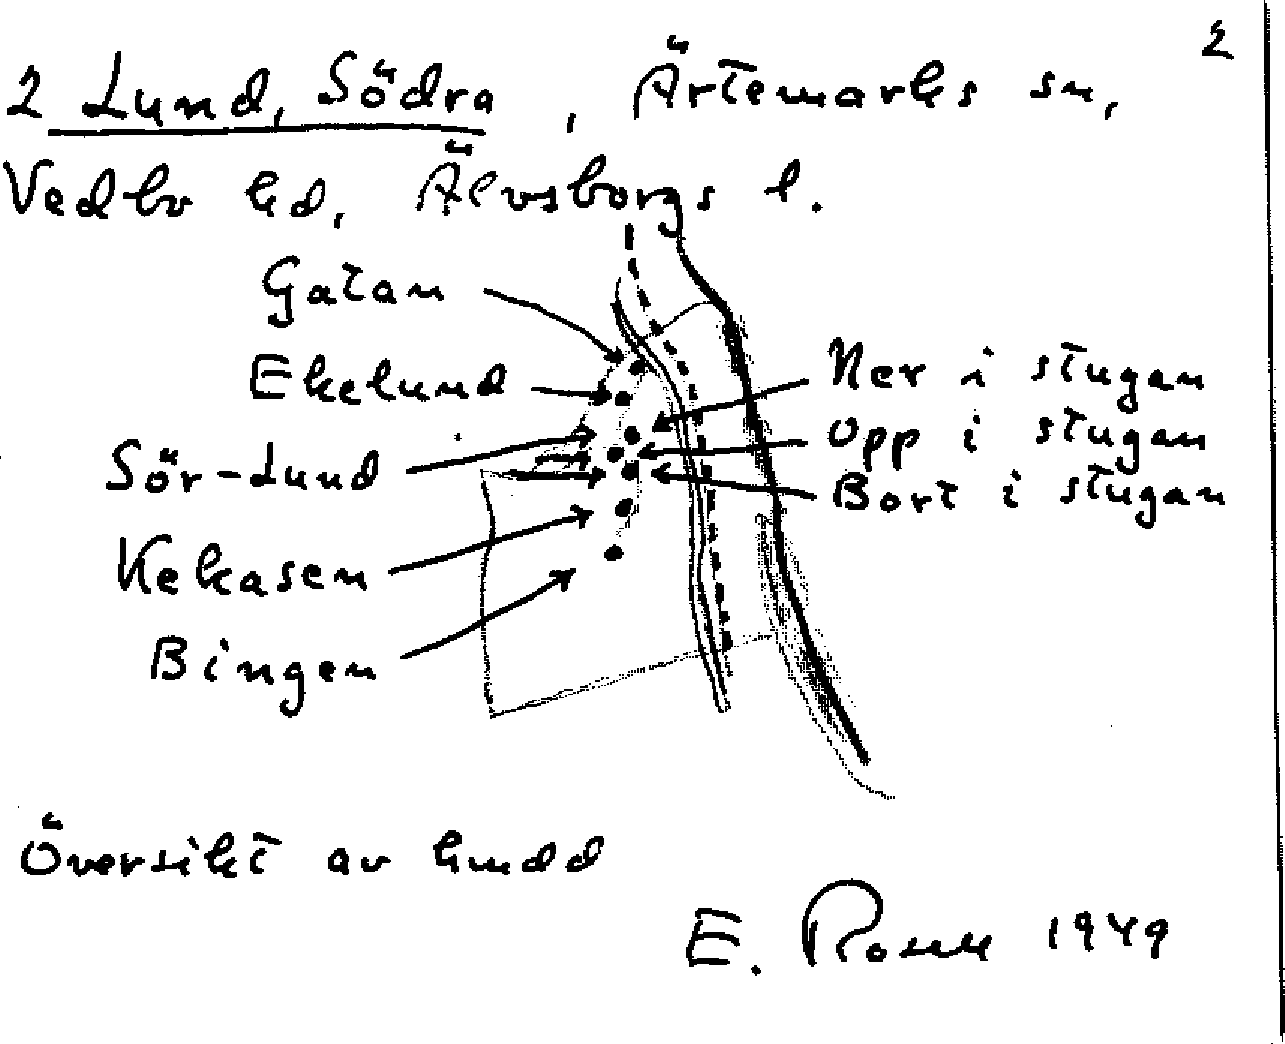 2
2 Lund, Södra, Ärtemarks sn,
Vedbo hd, Älvsborgs l.
Gatan
Ekelund
Ner i stugan
Opp i stugan
Sör-Lund
Bort i stugan
Kekasen
Bingen
Översikt av
E. 1949